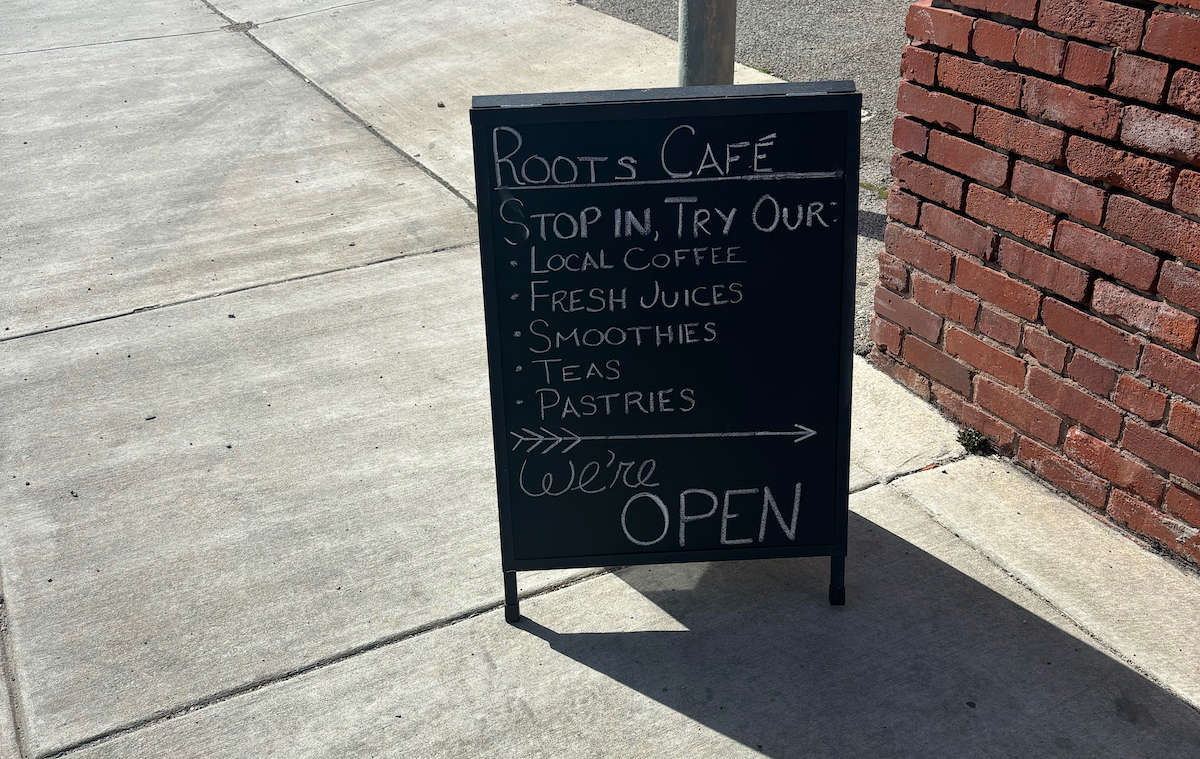 ROOTS CAFÉ
STOP IN, TRY OUR:
· LOCAL COFFEE
· FRESH JUICES
· SMOOTHIES
· TEAS
· PASTRIES
We're
OPEN